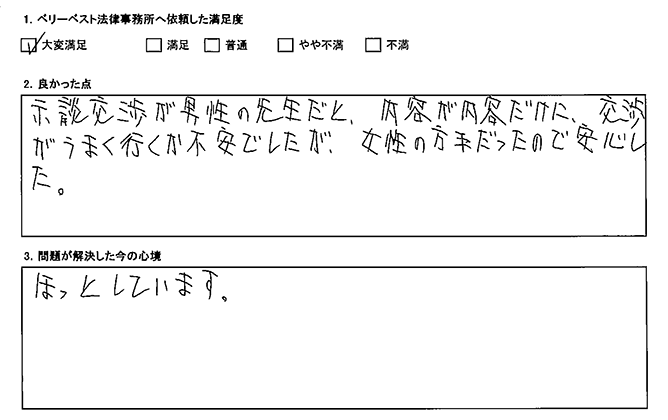 1. ベリーベスト法律事務所へ依頼した満足度
大変満足 満足 普通 やや不満 不満
2. 良かった点
示談交渉が男性の先生だと、内容が内容だけに、交渉
がうまく行くか不安でしたが、女性の方まだったので安心し
た。
3. 問題が解決した今の心境
ほっとしています。